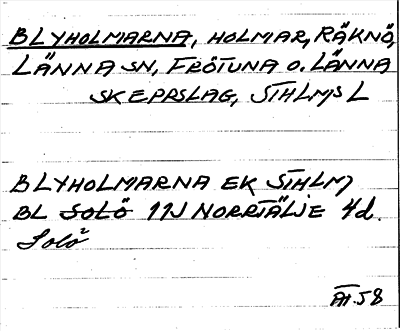 BLYHOLMARNA, HOLMAR, RÄKNÖ,
LÄNNA SN, FRÖTUNA O. LÄNNA
SKEPPSLAG, STHLMS L
BLYHOLMARNA EK STHLM
BL SOLÖ 11J NORRTÄLJE 4d.
Solö
58